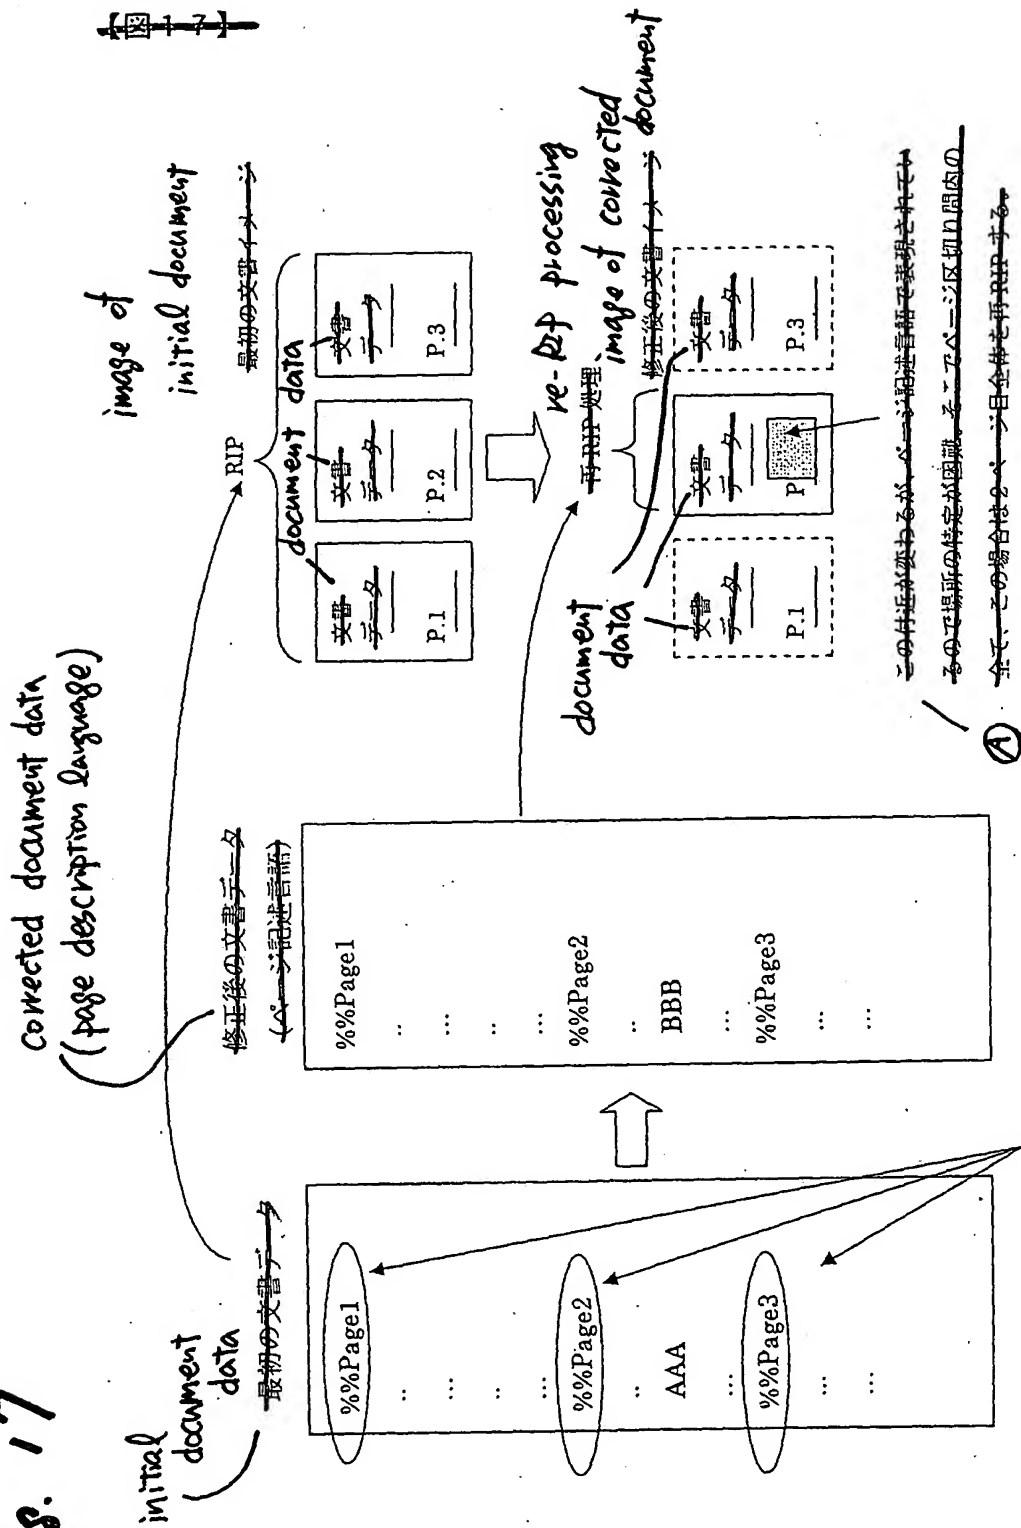 【図17】
g. 17
initial
document
data
最初の文書データ
%%Page1
..
...
..
...
%%Page2
..
AAA
...
%%Page3
...
...
corrected document data
(page description language)
修正後の文書データ
(ページ記述言語)
%%Page1
..
...
..
...
%%Page2
..
BBB
...
%%Page3
...
...
image of
initial document
最初の文書イメージ
RIP
document data
文書
データ
P.1
文書
データ
P.2
文書
データ
P.3
re-RIP processing
再RIP処理
image of corrected document
修正後の文書イメージ
document
data
文書
データ
P.1
文書
データ
P
文書
データ
P.3
この付近が変わるが、ページ記述言語で表現されてい
るので場所の特定が困難。そこでページ区切り間内の
全て、この場合は2ページ目全体を再RIPする。
A